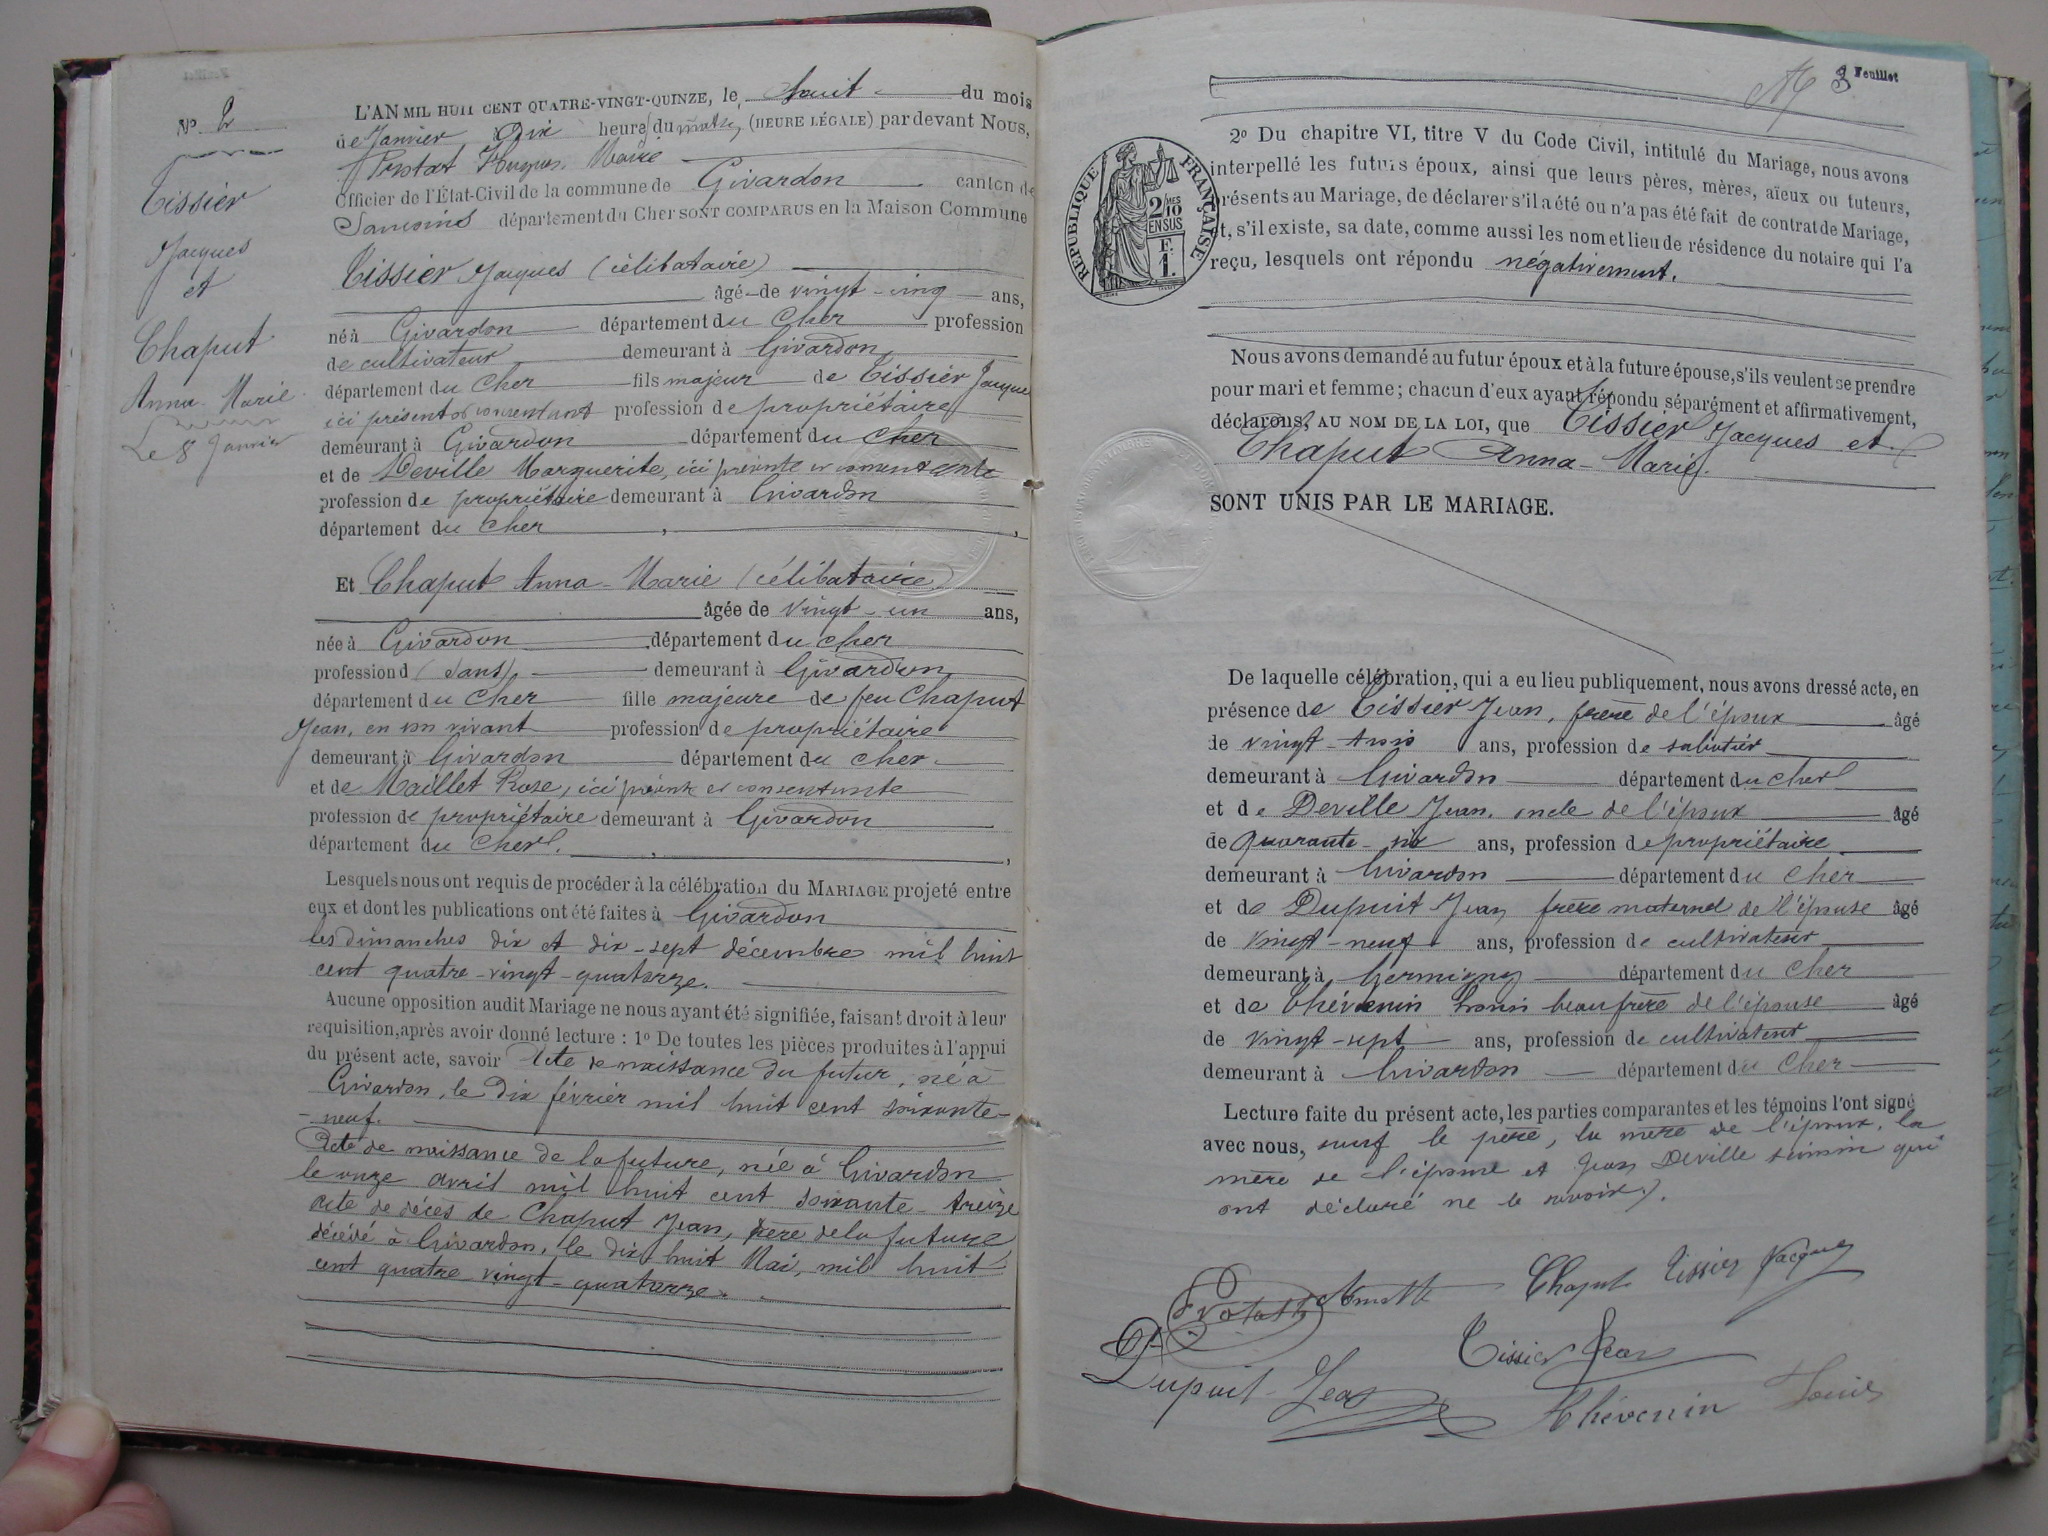 N° 2
Tissier
Jacques
et
Chaput
Anna-Marie
Le 8 Janvier
L'AN MIL HUIT CENT QUATRE-VINGT-QUINZE, le huit du mois
de Janvier Dix heures du matin, (HEURE LÉGALE) par devant Nous,
Maire
Officier de l'État-Civil de la commune de Givardon canton de
Sancoins département du Cher SONT COMPARUS en la Maison Commune
Tissier Jacques (célibataire)
âgé de vingt-cinq ans,
né à Givardon département du Cher profession
de cultivateur demeurant à Givardon
département du Cher fils majeur de Tissier Jacques
ici présent et consentant profession de propriétaire
demeurant à Givardon département du Cher
et de Deville Marguerite, ici présente et consentante
profession de propriétaire demeurant à Givardon
département du Cher,
Et Chaput Anna-Marie (célibataire)
âgée de vingt-un ans,
née à Givardon département du Cher
profession d (sans) demeurant à Givardon
département du Cher fille majeure de feu Chaput
Jean, en son vivant profession de propriétaire
demeurant à Givardon département du Cher
et de Maillet Rose, ici présente et consentante
profession de propriétaire demeurant à Givardon
département du Cher.
Lesquels nous ont requis de procéder à la célébration du MARIAGE projeté entre
eux et dont les publications ont été faites à Givardon
les dimanches dix et dix-sept décembre mil huit
cent quatre-vingt-quatorze.
Aucune opposition audit Mariage ne nous ayant été signifiée, faisant droit à leur
réquisition, après avoir donné lecture : 1° De toutes les pièces produites à l'appui
du présent acte, savoir Acte de naissance du futur, né à
Givardon, le dix février mil huit cent soixante-
-neuf.
Acte de naissance de la future, née à Givardon
le onze avril mil huit cent soixante-treize
acte de décès de Chaput Jean, père de la future
décédé à Givardon, le dix huit Mai, mil huit
cent quatre-vingt-quatorze.
3 Feuillet
RÉPUBLIQUE FRANÇAISE
2/10 MES
EN SUS
F.
1.
2° Du chapitre VI, titre V du Code Civil, intitulé du Mariage, nous avons
interpellé les futurs époux, ainsi que leurs pères, mères, aïeux ou tuteurs,
présents au Mariage, de déclarer s'il a été ou n'a pas été fait de contrat de Mariage,
et, s'il existe, sa date, comme aussi les nom et lieu de résidence du notaire qui l'a
reçu, lesquels ont répondu négativement.
Nous avons demandé au futur époux et à la future épouse, s'ils veulent se prendre
pour mari et femme; chacun d'eux ayant répondu séparément et affirmativement,
déclarons, AU NOM DE LA LOI, que Tissier Jacques et
Chaput Anna-Marie.
SONT UNIS PAR LE MARIAGE.
De laquelle célébration, qui a eu lieu publiquement, nous avons dressé acte, en
présence de Tissier Jean, frère de l'époux âgé
de vingt-trois ans, profession de sabotier
demeurant à Givardon département du Cher
et de Deville Jean, oncle de l'époux âgé
de quarante-six ans, profession de propriétaire
demeurant à Givardon département du Cher
et de Dupuit Jean frère maternel de l'épouse âgé
de vingt-neuf ans, profession de cultivateur
demeurant à Germigny département du Cher
et de Thévenin Louis beau frère de l'épouse âgé
de vingt-sept ans, profession de cultivateur
demeurant à Givardon département du Cher
Lecture faite du présent acte, les parties comparantes et les témoins l'ont signé
avec nous, sauf le père, la mère de l'époux, la
mère de l'épouse et Jean Deville témoin qui
ont déclaré ne le savoir.
Chaput Tissier Jacques
Tissier Jean
Dupuit Jean
Thévenin Louis